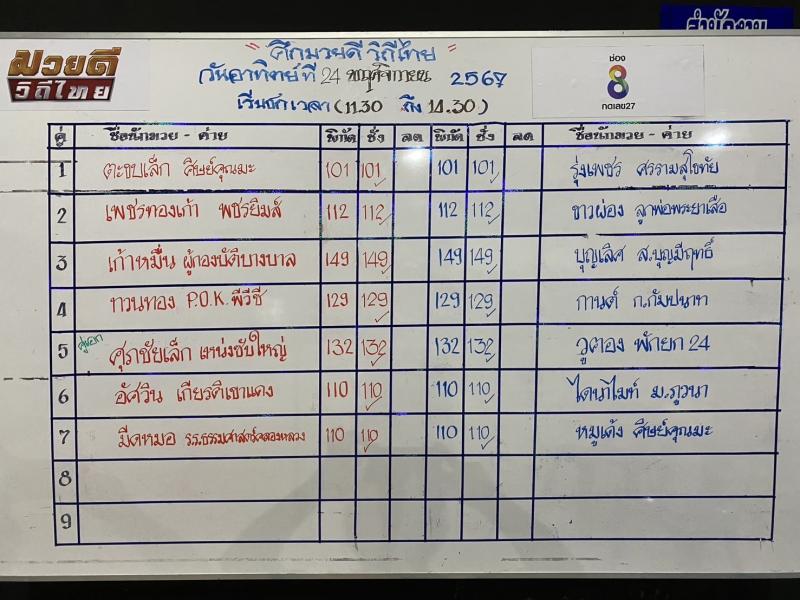 สำนักงาน
มวยดี
วิถีไทย
"ศึกมวยดี วิถีไทย"
วันอาทิตย์ที่ 24 พฤศจิกายน 2567
เริ่มชกเวลา (11.30 ถึง 14.30)
ช่อง
8
กดเลข27
คู่ ชื่อนักมวย - ค่าย พิกัด ชั่ง ลด พิกัด ชั่ง ลด ชื่อนักมวย - ค่าย
1 ตะขบเล็ก ศิษย์คุณมะ 101 101 101 101 รุ่งเพชร ศรรามสุโขทัย
2 เพชรทองเก้า พชรยิมส์ 112 112 112 112 ขาวผ่อง ลูกพ่อพระยาเสือ
3 เก้าหมื่น ผู้กองบัติบางบาล 149 149 149 149 บุญเลิศ ส.บุญมีฤทธิ์
4 ทวนทอง P.O.K.พีวีซี 129 129 129 129 กานต์ ก.กัมปนาท
5 คู่เอก ศุภชัยเล็ก แหน่งซับใหญ่ 132 132 132 132 วูคอง พักยก 24
6 อัศวิน เกียรติเขาแดง 110 110 110 110 ไดนาไมท์ ม.ภูวนา
7 มีดหมอ รร.ธรรมศาสตร์คลองหลวง 110 110 110 110 หมูเด้ง ศิษย์คุณมะ
8
9